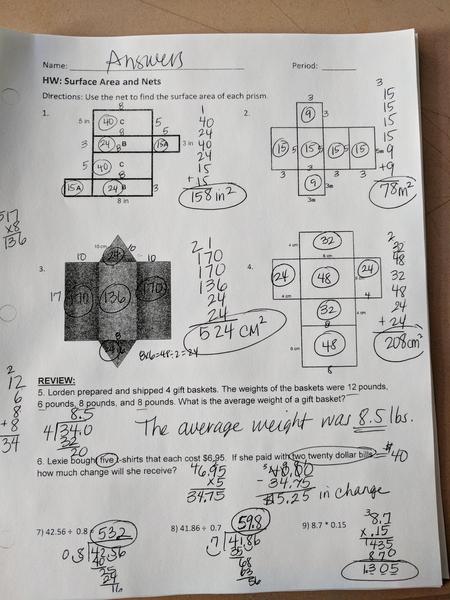 Name: Answers Period:
HW: Surface Area and Nets
Directions: Use the net to find the surface area of each prism.
1.
8
5 in 40 C 5
5
3 24 8 B 15A 3 in
5 40 C
15A 24 B 3
8 in
1
40
40
24
40
24
15
+ 15
158 in²
2.
3
9 3
15 5 15 5 15 5 15 5m
3
9 3
3m 3m
3
15
15
15
15
9
+9
78 m²
517
x8
136
3.
10 cm
24 6
10 10
17 170 136 170
8
24
8x6=48÷2=24
2 1
170
170
136
24
24
524 cm²
4.
4 cm 32
8 cm
24 48 24
4 cm 4 cm 4
32 4 cm
6 cm 48
8
2
32
48
32
48
24
+ 24
208 cm²
REVIEW:
5. Lorden prepared and shipped 4 gift baskets. The weights of the baskets were 12 pounds,
6 pounds, 8 pounds, and 8 pounds. What is the average weight of a gift basket?
2
12
6
8
+ 8
34
8.5
4 34.0
32
20
The average weight was 8.5 lbs.
6. Lexie bought five t-shirts that each cost $6.95. If she paid with two twenty dollar bills, $40
how much change will she receive?
46.95
x5
34.75
- 34.75
$5.25 in change
7) 42.56 ÷ 0.8 = 53.2
0.8 42.56
40
25
24
16
8) 41.86 ÷ 0.7 59.8
.7 41.86
35
68
63
56
9) 8.7 * 0.15
3
8.7
x .15
1435
870
1.305